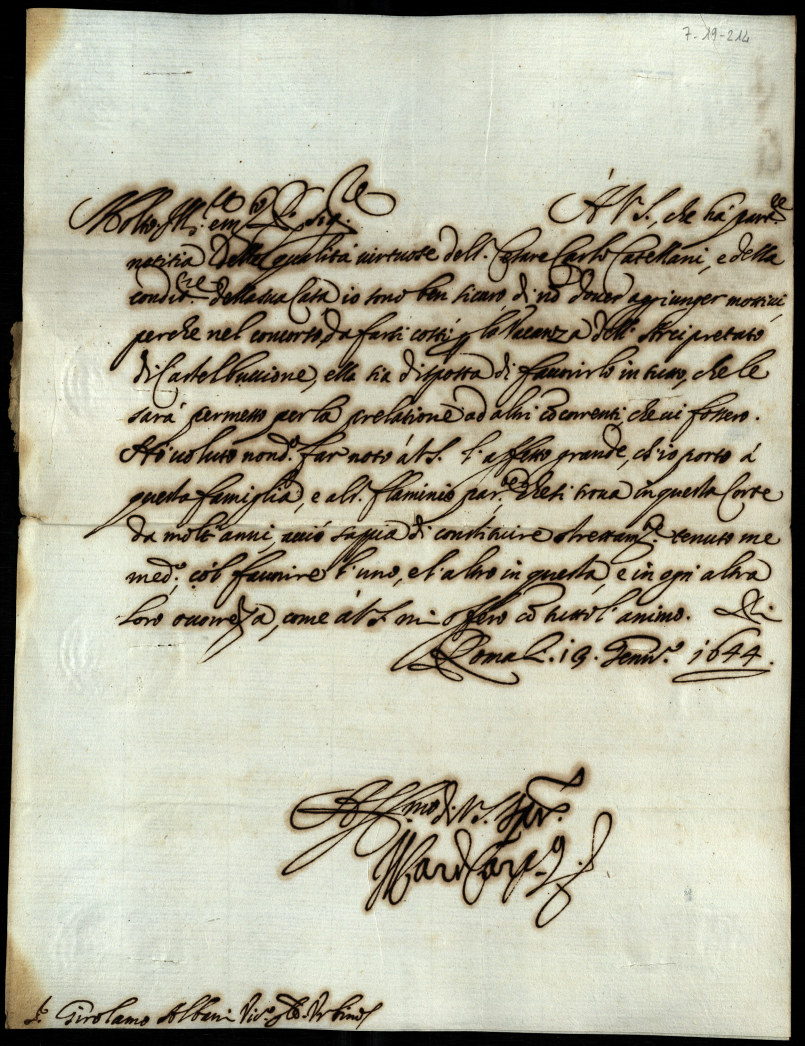 7-19-214
Molto Ill.re e m.to R.do sig.re A V.S., che hà par.re
notitia delle qualità virtuose dell S. Cesare Carlo Castellani, e della
condit.ne della sua Casa io sono ben sicuro di nō dover aggiunger mottivi,
perche nel concorso, da farsi costì p la Vacanza dell' Arcipretato
di Castelbuccione, ella sia disposta di favorirlo in tutto, che le
sarà permesso per la prelatione ad altri cōcorrenti, che vi fossero.
Hò voluto nond.o far noto à V.S. l'affetto grande, ch'io porto à
questa famiglia, e al S. flaminio par.te che si trova in questa Corte
da molt' anni, acciò sappia di constituire strettam.te tenuto me
med.o cō'l favorire l'uno, e l'altro in questa, e in ogni altra
loro occorrēza, come à V.S. mi offero cō tutto l'animo. Di
Roma li. 19. Genn.o 1644.
Aff.mo di V.S. Ser.re
S.r Girolamo Albani Vic.o g.le Urbino